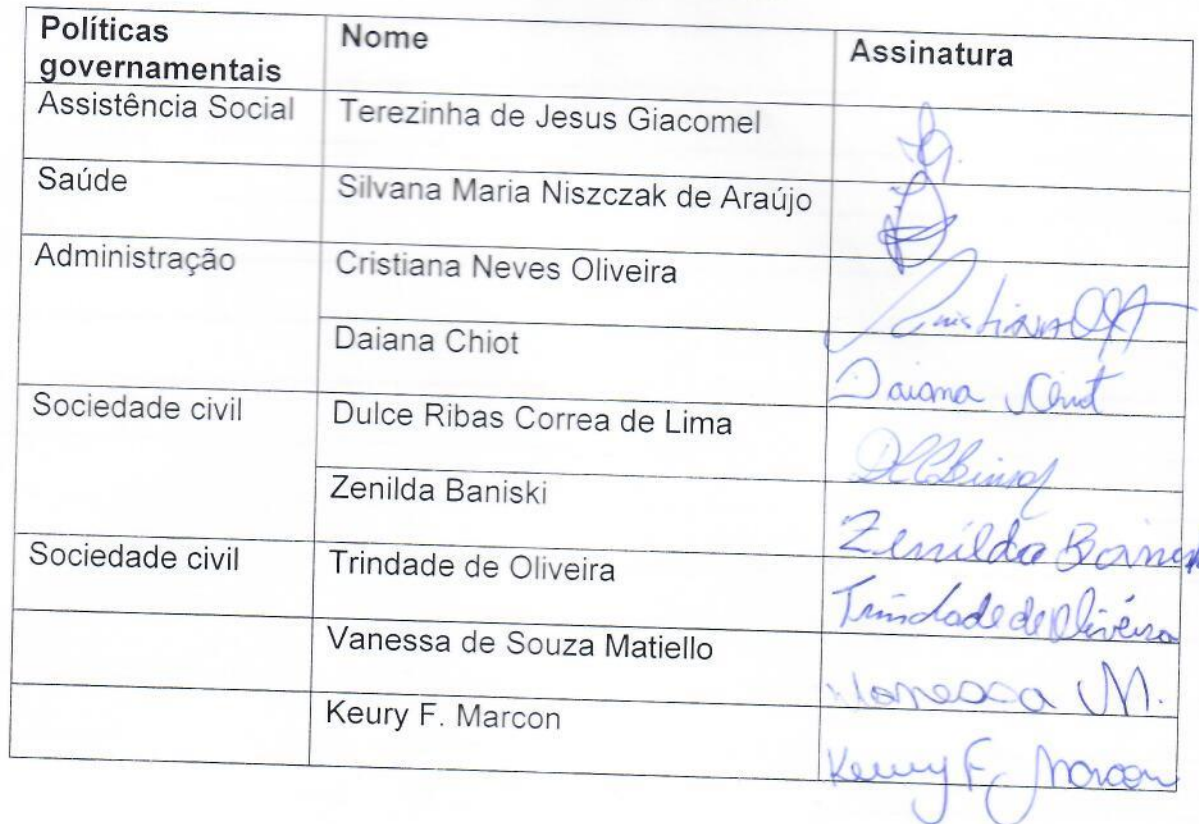 Políticas governamentais
Nome
Assinatura
Assistência Social
Terezinha de Jesus Giacomel
Saúde
Silvana Maria Niszczak de Araújo
Administração
Cristiana Neves Oliveira
Cristiana
Daiana Chiot
Daiana Chiot
Sociedade civil
Dulce Ribas Correa de Lima
Zenilda Baniski
Zenilda
Sociedade civil
Trindade de Oliveira
Trindade de Oliveira
Vanessa de Souza Matiello
Vanessa M.
Keury F. Marcon
Keury F. Marcon